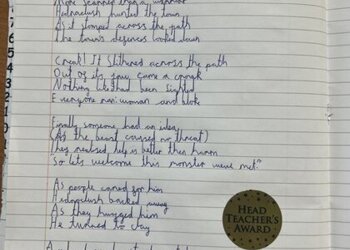 More                      than a
           hunted the town
As it stomped across the path
The town's defences looked down
Creak! It Slithered across the path
Out of it's       came a
Nothing like that had been sighted
Everyone man, woman and bloke
Finally someone had an idea
(As the beast caused no threat)
They realised help is better then harm
So lets welcome this monster weve met."
As people cared for him
              backed away
As they hugged him
He turned to clay
HEAD
TEACHER'S
AWARD
6
5
4
3
2
1
0